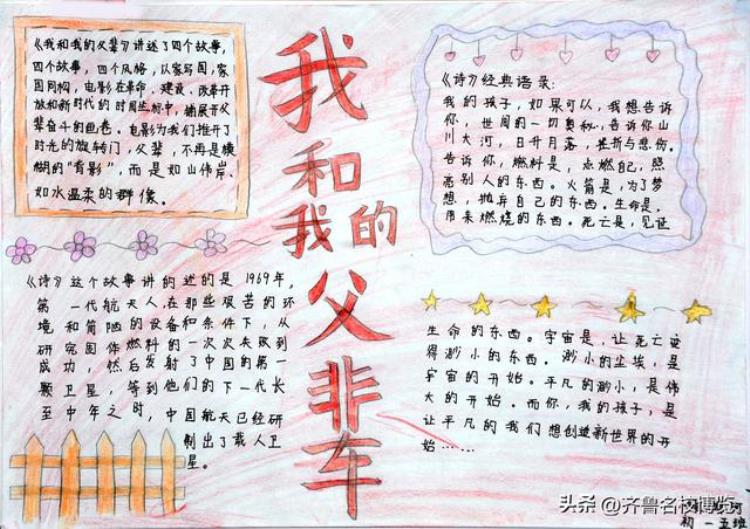 《我和我的父辈》讲述了四个故事,
四个故事，四个风格，以家写国，家
国同构，电影在革命、建设、改革开
放和新时代的时间坐标中，铺展开父
辈奋斗的画卷。电影为我们推开了
时光的旋转门，父辈，不再是模
糊的"背影"，而是如山伟岸、
如水温柔的群像。
《诗》这个故事讲的述的是1969年,
第一代航天人,在那些艰苦的环
境和简陋的设备和条件下，从
研究固体燃料的一次次失败到
成功，然后发射了中国的第一
颗卫星，等到他们的下一代长
至中年之时，中国航天已经研
制出了载人卫
星。
我
和
我的
父
非
车
《诗》经典语录:
我的孩子，如果可以，我想告诉
你，世间的一切奥秘，告诉你山
川大河，日升月落，挫折与悲伤。
告诉你，燃料是，点燃自己，照
亮别人的东西。火箭是，为了梦
想，抛弃自己的东西。生命是,
用来燃烧的东西。死亡是，见证
生命的东西。宇宙是，让死亡变
得渺小的东西。渺小的尘埃，是
宇宙的开始。平凡的渺小，是伟
大的开始。而你，我的孩子，是
让平凡的我们想创造新世界的开
始……
头条 @齐鲁名校博览